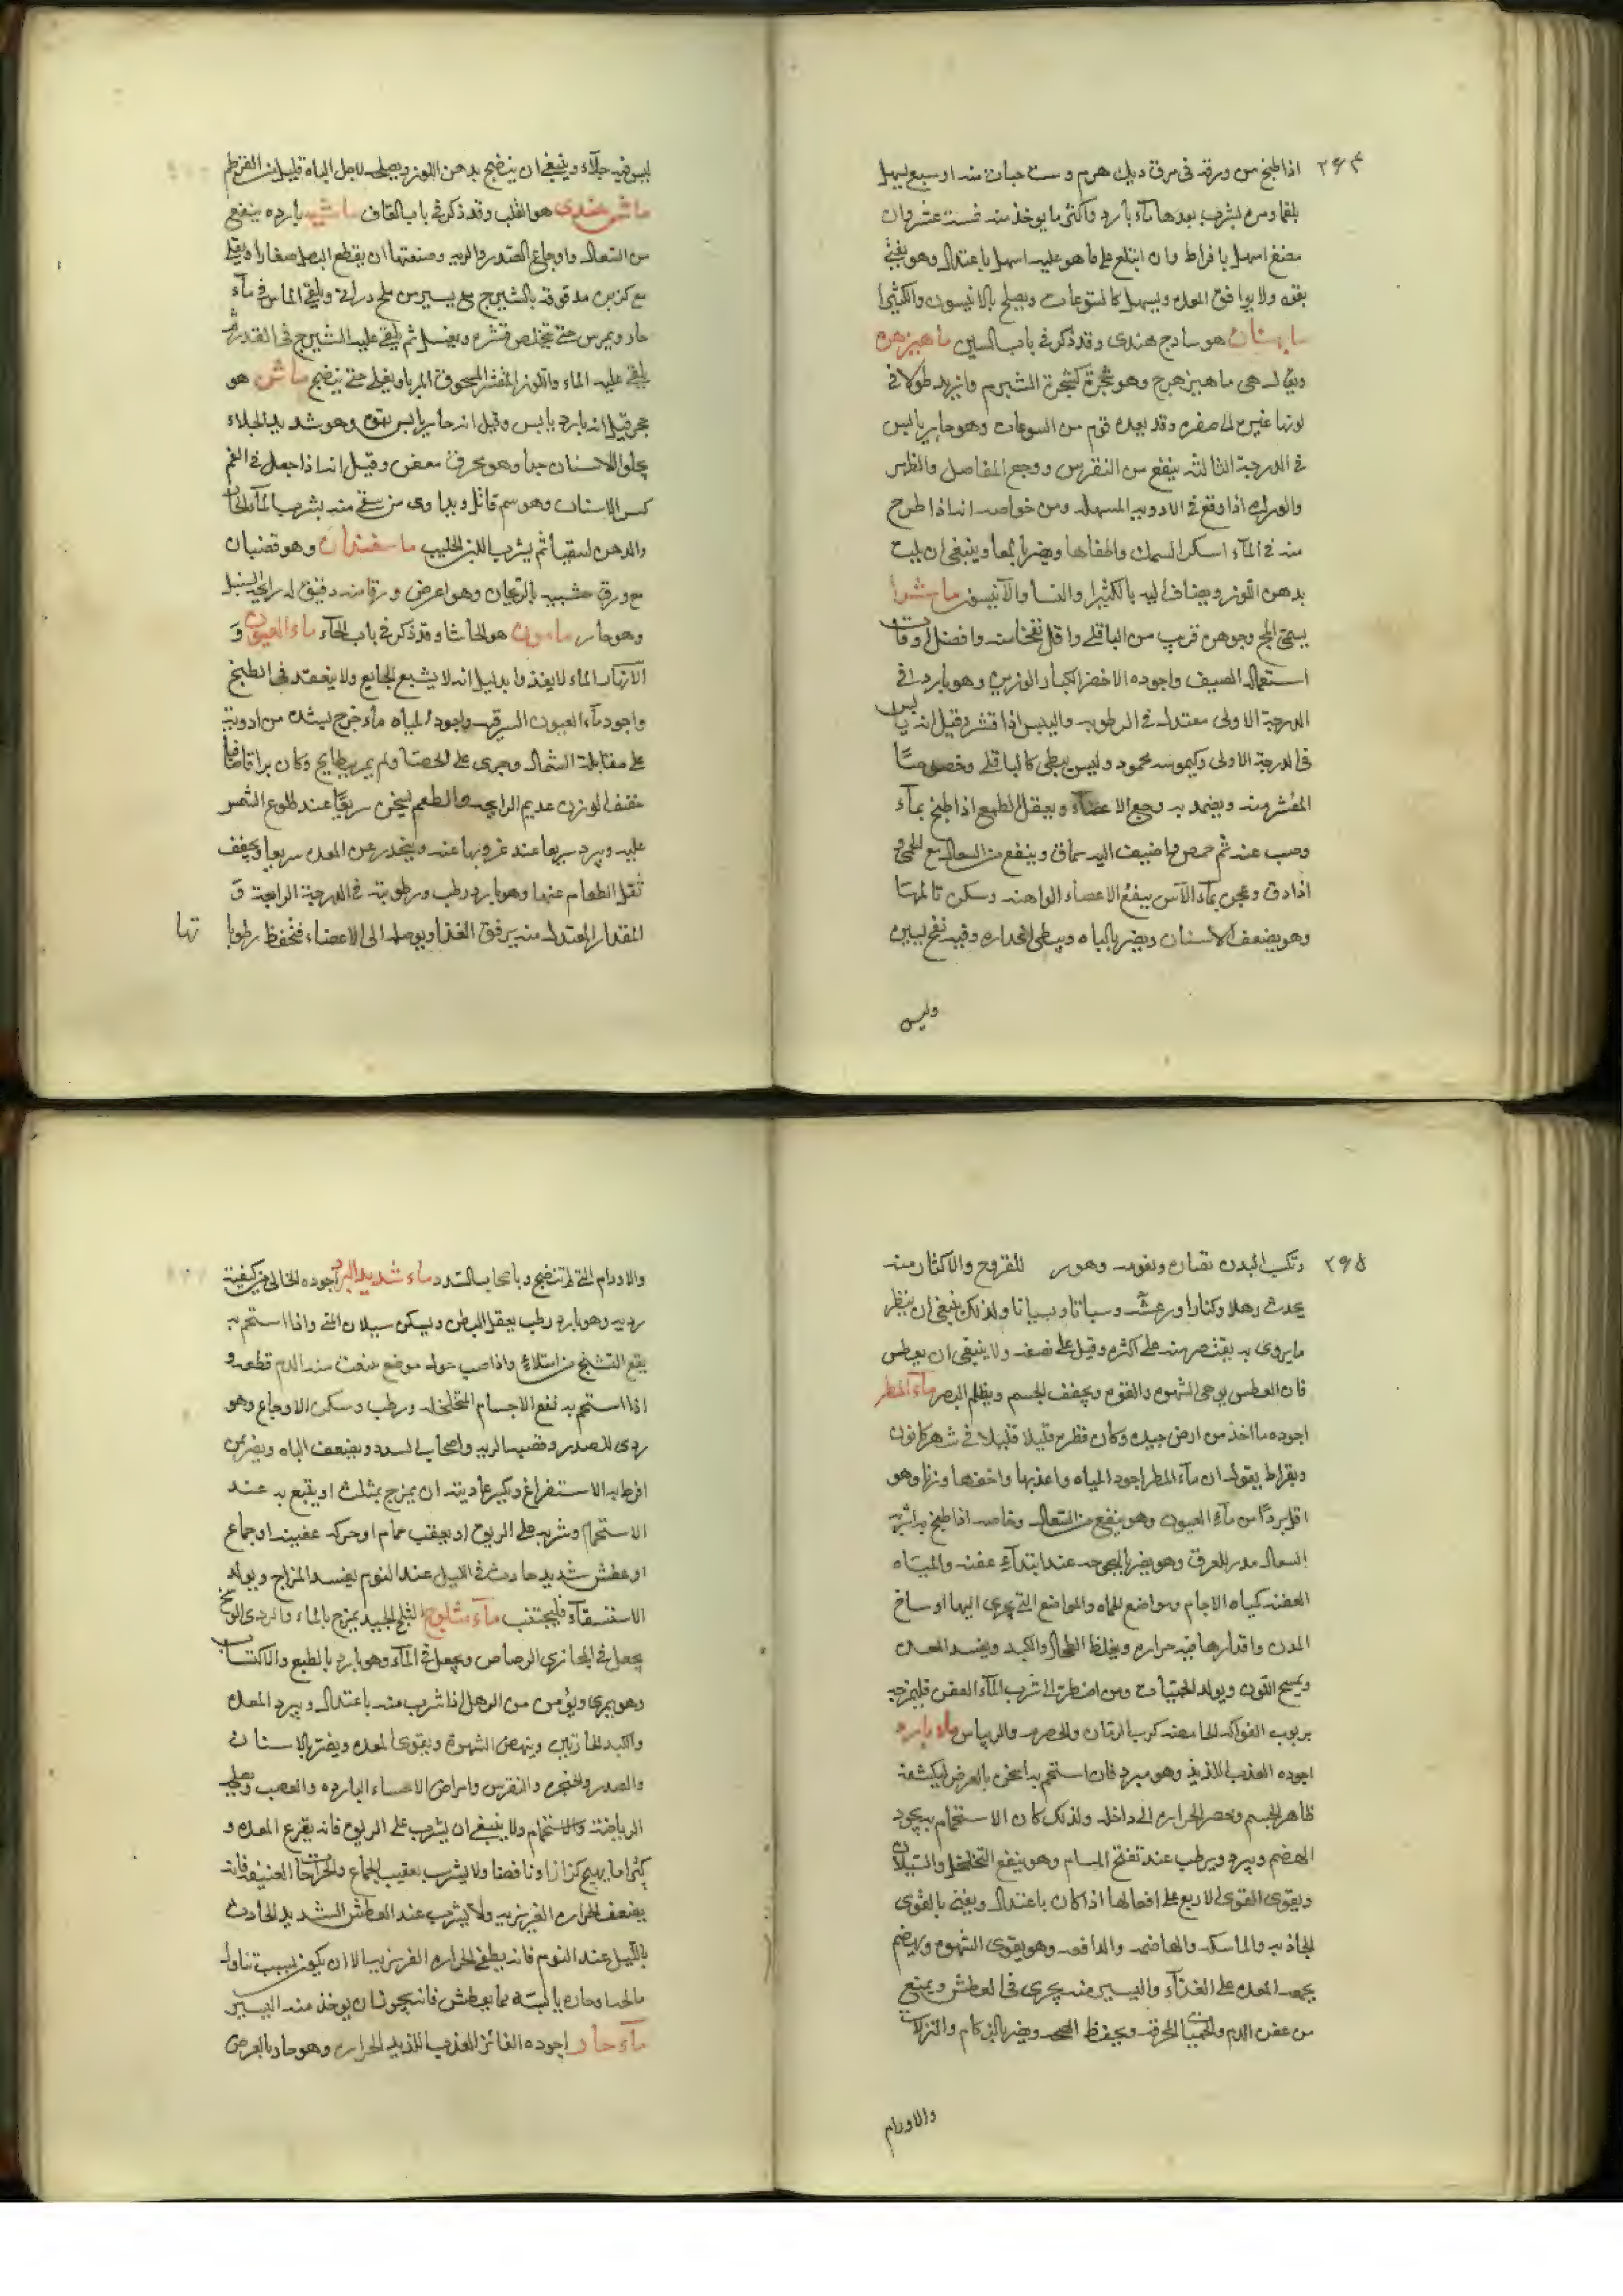 ٢٦٤ اذا طبخ من ورقه فى مرق ديك هرم وست حبات منه او سبع يسهل
بلغما ومن يشرب بعدها ماء بارد واكثر ما يوخذ منه خمسة عشر وان
مضغ اسهل بافراط وان ابتلع على ما هو عليه اسهل باعتدال وهو يغثى
بقوه ولا يوافق المعده ويسهل كاليتوعات ويصلح بالانيسون والكثيرا
هو سادج هندى وقد ذكر فى باب السين ماهيزهره
ويقال هى ماهيزهرج وهو شجرة كشجرة الشبرم وازيد طولا فى
لونها غبره الى صفره وقد يعده قوم من اليتوعات وهو حار يابس
فى الدرجة الثالثه ينفع من النقرس ووجع المفاصل والظهر
والورك اذا وقع فى الادويه المسهله ومن خواصه انه اذا طرح
منه فى الماء اسكر السمك واطفاها ويضر بالمعا وينبغى ان يلت
بدهن اللوز ويضاف اليه بالكثيرا والنشا والانيسون ماش
يسمى المج وجوهره قريب من الباقلى واقل نفخا منه وافضل اوقات
استعماله الصيف واجوده الاخضر الكبار الوزين وهو بارد فى
الدرجة الاولى معتدل فى الرطوبه واليبس اذا قشر وقيل انه يابس
فى الدرجة الاولى وكيموسه محمود وليس ببطى كالباقلى وخصوصا
المقشر منه ويضمد به وجع الاعضاء ويعقل الطبع اذا طبخ بماء
وصب عنه ثم حمص واضيف اليه سماق وينفع من السعال مع الحمى و
اذا دق وعجن بماء الآس ينفع الاعضاء الواهنه وسكن تالمها
وهو يضعف الاسنان ويضر بالباه ويبطى انحداره وفيه نفخ يسير
وليس
ليس فيه جلاء وينبغى ان ينضج بدهن اللوز ويصلح لاجل الباه قليل من القرطم
ماش هندى هو القلب وقد ذكر فى باب القاف ماشيه بارده ينفع
من السعال واوجاع الصدر والريه وصنعتها ان يقطع البصل صغارا ويقلى
مع كزبره مدقوقه بالشيرج مع يسير من ملح درانى ويلقى الماش فى ماء
حار ويمرس حتى يتخلص قشره ويغسل ثم يلقى عليه الشيرج فى القدر ثم
يلقى عليه الماء واللوز المقشر المسحوق المربا ويغلى حتى ينضج ماس هو
حجر قيل انه بارد يابس وقيل انه حار يابس بقوه وهو شديد الجلاء
يجلو الاسنان جدا وهو محرق معفن وقيل انه اذا جعل فى الفم
كسر الاسنان وهو سم قاتل ويداوى من سقى منه بشرب الماء الحار
والدهن ليتقيا ثم يشرب اللبن الحليب ماسفندان وهو قضبان
مع ورق شبيه بالريحان وهو اعرض ورقا منه دقيق له رايحة السنبل
وهو حار مامون هو الحاشا وقد ذكر فى باب الحاء ماء العيون و
الانهار الماء لا يغذوا بدليل انه لا يشبع الجايع ولا ينعقد فى الطبخ
واجود ماء العيون الشرقيه واجود المياه ماء خرج ليشه من اودية
على مقابلة الشمال وجرى على الحصا ولم يمر ببطايح وكان براقا صافيا
خفيف الوزن عديم الرايحة والطعم يسخن سريعا عند طلوع الشمس
عليه ويبرد سريعا عند غروبها عنه وينحدر عن المعده سريعا ويخفف
ثقل الطعام عنها وهو بارد رطب ورطوبته فى الدرجة الرابعة و
المقدار المعتدل منه يرقق الغذا ويوصله الى الاعضاء فتحفظ رطوبا تها
٢٦٥ وتكسب البدن نضاره ونعومه وهو للقروح والاكثار منه
يحدث رهلا وكزازا ورعشه وسباتا ونسيانا ولذلك ينبغى ان ينظر
ما يروى به يقتصر منه على اكثره وقيل على نصفه ولا ينبغى ان يعطش
فان العطش يوهى الشهوه والقوه ويجفف الجسم ويظلم البصر ماء المطر
اجوده ما اخذ من ارض جيده وكان قطره قليلا قليلا فى شهر كانون
وبقراط يقول ان ماء المطر اجود المياه واعذبها واخفها وزنا وهو
اقل بردا من ماء العيون وهو ينفع من السعال وخاصه اذا طبخ به اشربة
السعال مدر للعرق وهو يضر بالبحوحه عند ابتداء عفنه والمياه
العفنه كمياه الاجام ومواضع الحماه والمواضع التى يجرى اليها اوساخ
المدن واقذارها فيه حراره ويغلظ الطحال والكبد ويفسد المعده
ويسمج اللون ويولد الحميات ومن اضطر الى شرب الماء العفن فليمزجه
بربوب الفواكه الحامضه كرب الرمان والحصرم والريباس ماء بارد
اجوده العذب اللذيذ وهو مبرد فان استحم به اسخن بالعرض لتكثيفه
ظاهر الجسم وحصر الحراره الى داخله ولذلك كان الاستحمام به يجود
الهضم ويبرد ويرطب عند تفتح المسام وهو ينفع التخلخل والسيلان
ويقوى القوى الاربع على افعالها اذا كان باعتدال ويعنى بالقوى
الجاذبه والماسكه والهاضمه والدافعه وهو يقوى الشهوه ويهضم
يجمع المعده على الغذاء واليسير منه يجزى فى العطش ويمنع
من عفن الدم والحميات المحرقه ويحفظ الصحه ويضر بالزكام والنزلات
والاورام
والاورام التى لم تنضج وباصحاب السدد ماء شديد البرد اجوده الخالى من كيفية
رديه وهو بارد رطب يعقل البطن ويسكن سيلان المنى واذا استحم به
يقع التشنج من امتلاء واذا صب حول موضع ينبعث منه الدم قطعه و
اذا استحم به نفع الاجسام المتخلخله ورطب وسكن الاوجاع وهو
ردى للصدر وقصبة الريه واصحاب السدد ويضعف الباه ويضر من
افرط به الاستفراغ ويكسر عاديته ان يمزج بمثلث او يتبع به عند
الاستحمام وشربه على الريق او بعقب حمام او حركه عنيفه او جماع
او عطش شديد حادث فى الليل عند النوم يفسد المزاج ويولد
الاستسقاء فليجتنب ماء مثلوج الثلج الجيد يمزج بالماء والردى الوسخ
يجعل فى المجازى الرصاص ويجعل فى الماء وهو بارد بالطبع والاكتساب
وهو يمرى ويؤمن من الرهل اذا شرب منه باعتدال ويبرد المعده
والكبد الحارتين وينهض الشهوة ويقوى المعده ويضر بالاسنان
والصدر والحنجره والنقرس وامراض الاحشاء البارده والعصب ويصلحه
الرياضة والاستحمام ولا ينبغى ان يشرب على الريق فانه يقرع المعده و
كثيرا ما يهيج كزازا ونافضا ولا يشرب بعقيب الجماع والحركات العنيفه فانه
يضعف الحراره الغريزيه ولا يشرب عند العطش الشديد الحادث
بالليل عند النوم فانه يطفى الحراره الغريزيه الا ان يكون بسبب تناول
مالحه او حاره يابسه مما يعطش فانه يجوز ان يوخذ منه اليسير
ماء حار اجوده الفاتر العذب اللذيذ الحراره وهو حار بالعرض